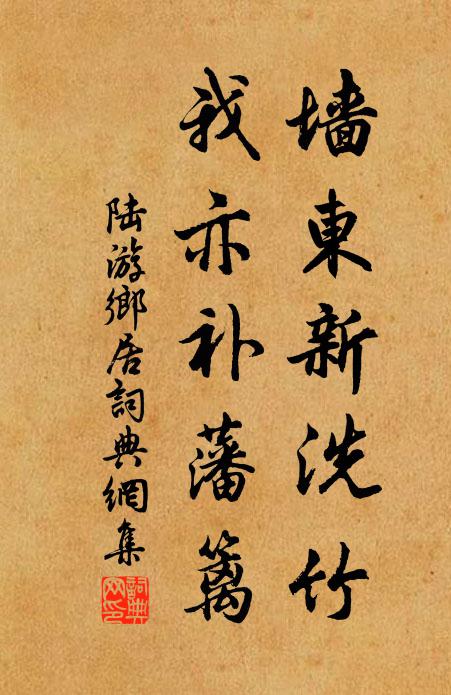 墙東新洗竹
我亦补藩篱
陆游鄉居詞典網集
詞典
网印